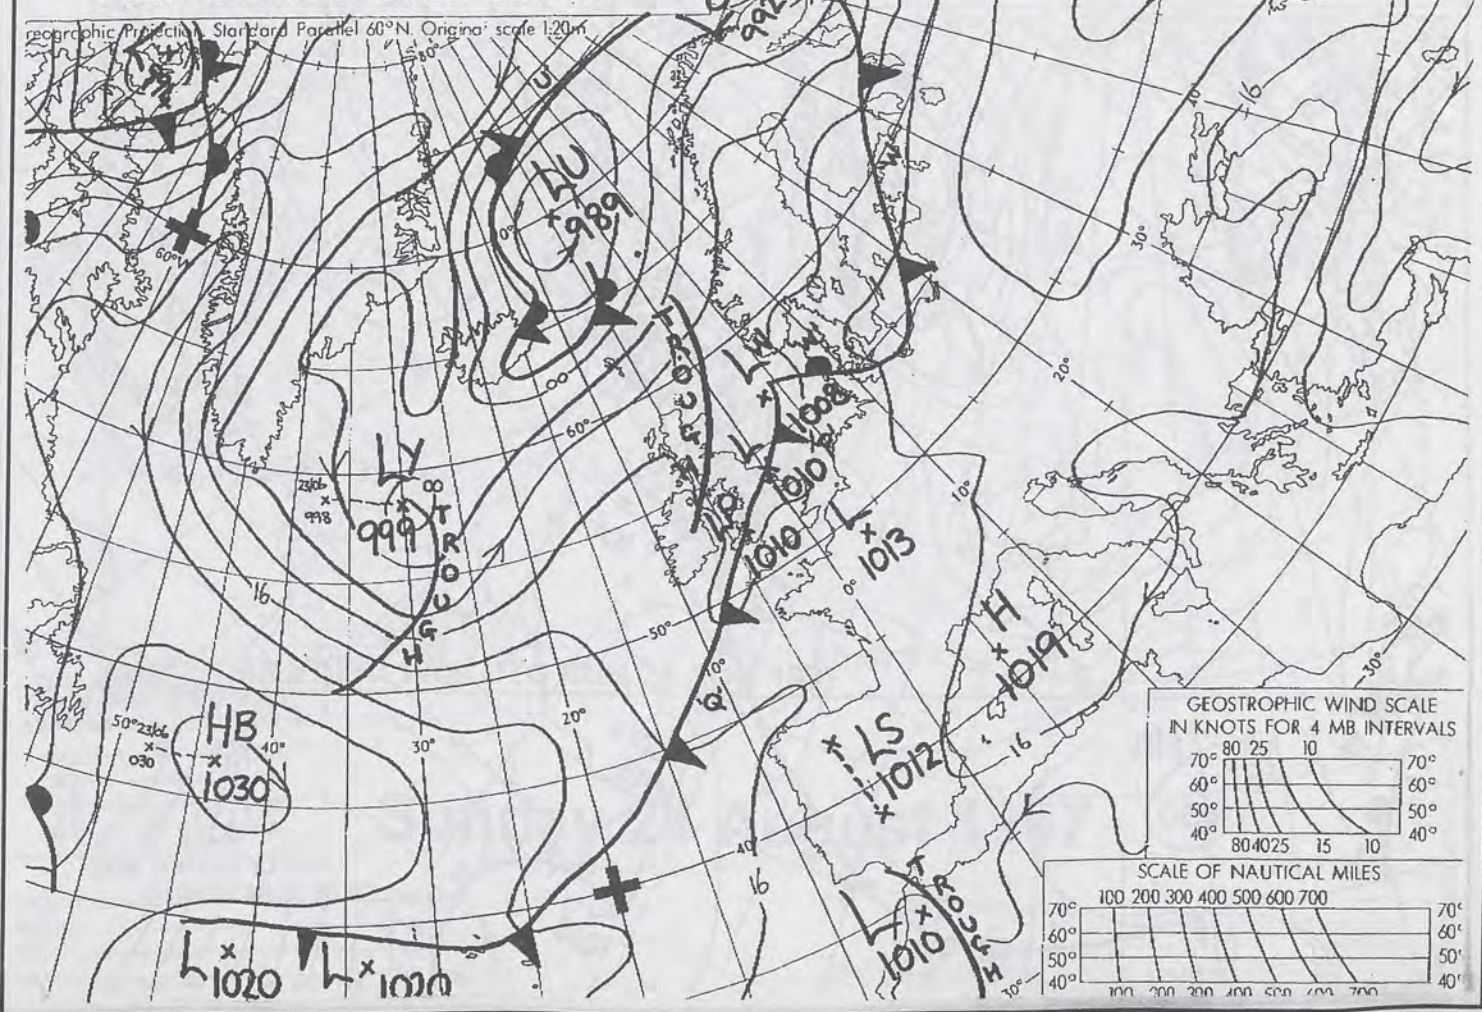 reographic Projection, Standard Parallel 60°N. Original scale 1:20m
992
80°
U
16
LU
989
0°
60°W
30°
20°
TROUGH
LW
W
1008
00
60°
L
1010
LP
1010
L
1013
10°
0°
LY
999
00
23/06
998
TROUGH
16
50°
H
1019
10°
Q
50°
23/06
030
HB
1030
40°
30°
20°
LS
1012
16
40°
16
30°
GEOSTROPHIC WIND SCALE
IN KNOTS FOR 4 MB INTERVALS
80 25 10
70° 70°
60° 60°
50° 50°
40° 40°
80 40 25 15 10
SCALE OF NAUTICAL MILES
100 200 300 400 500 600 700
70° 70°
60° 60°
50° 50°
40° 40°
100 200 300 400 500 600 700
TROUGH
L
1010
30°
L
1020
L
1020